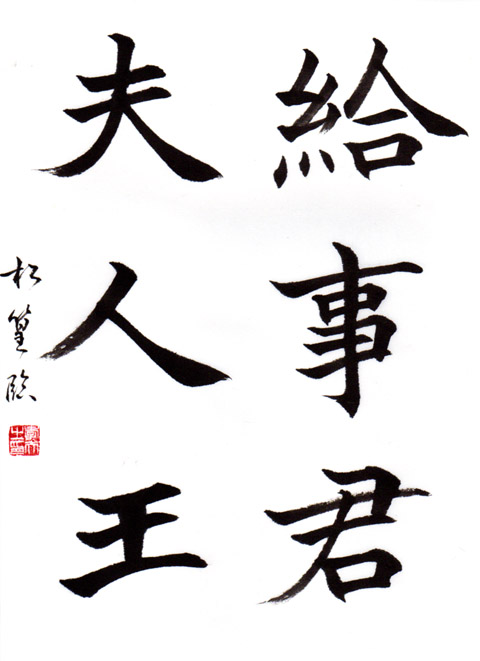 給事君
夫人王
松篁臨